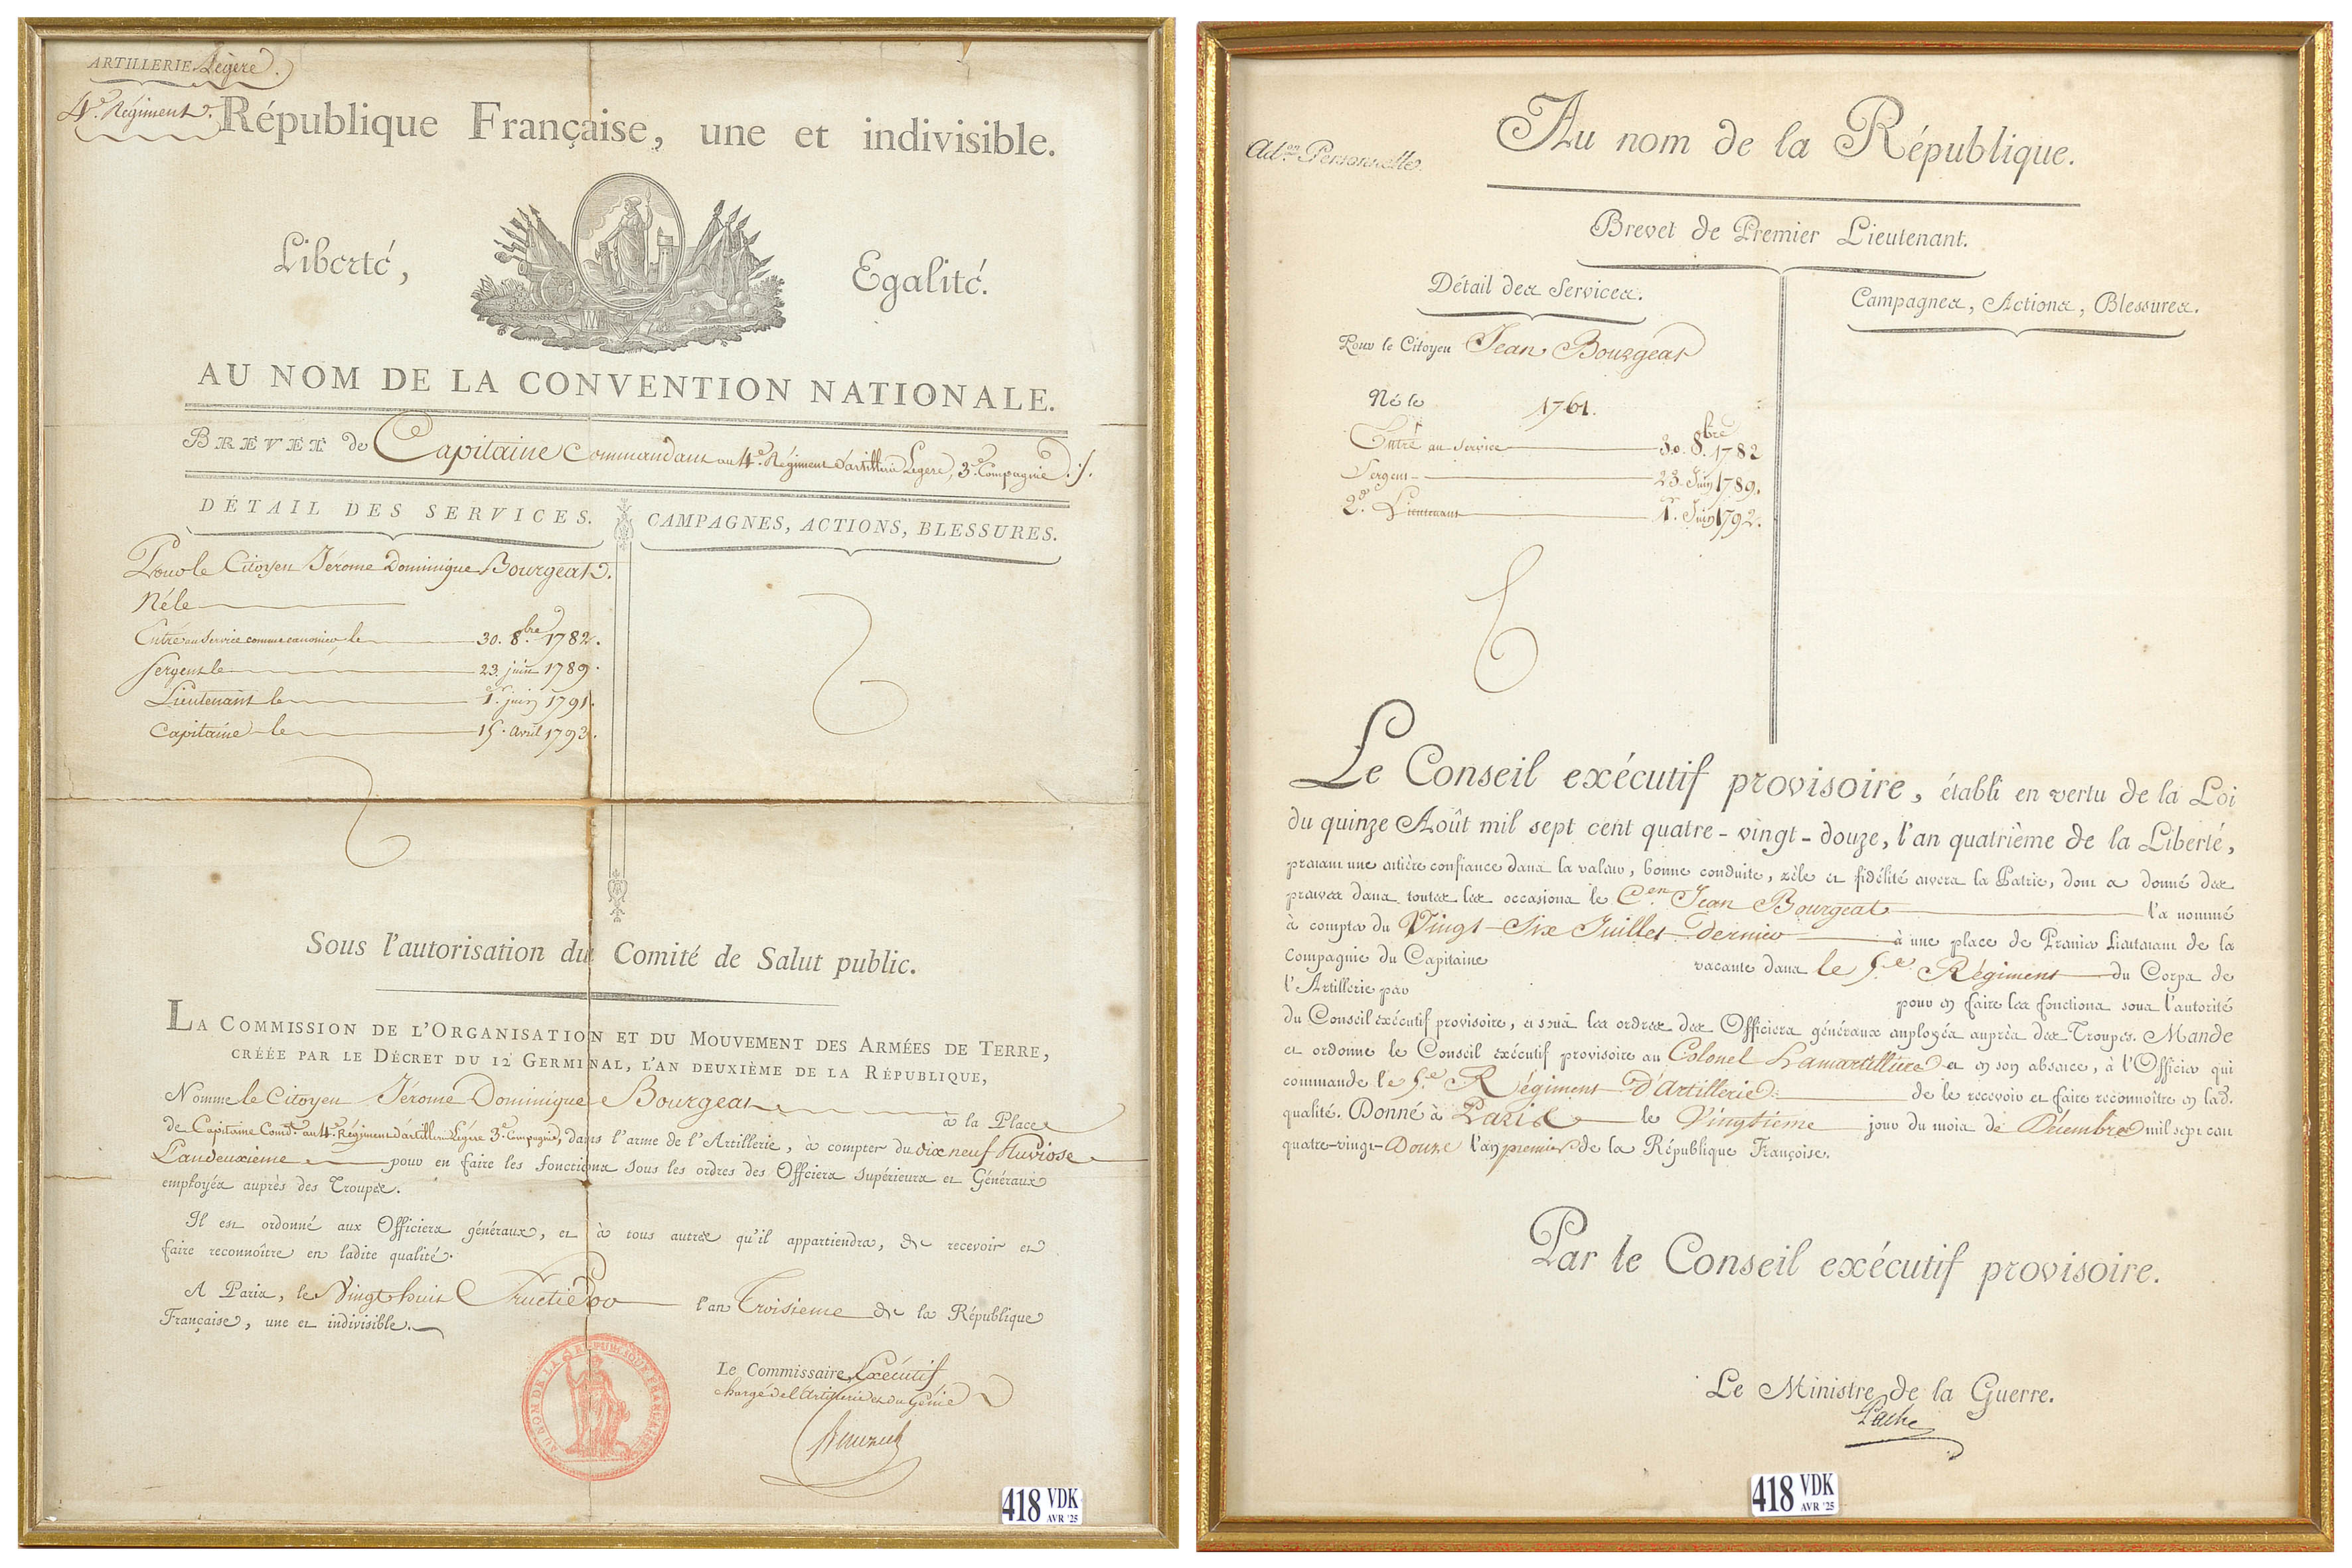 ARTILLERIE Légère.
4.e Régiment.
République Française, une et indivisible.
Liberté,
Egalité.
AU NOM DE LA CONVENTION NATIONALE.
BREVET de Capitaine Commandant au 4.e Régiment d'artillerie Légère, 3.e Compagnie
DÉTAIL DES SERVICES.
CAMPAGNES, ACTIONS, BLESSURES.
Pour le Citoyen Jérome Dominique Bourgeat.
Né le
Entré au Service comme canonier, le 30. 8.bre 1782.
Sergent le 23. juin 1789.
Lieutenant le 1.r juin 1791.
Capitaine le 15. avril 1793.
Sous l'autorisation du Comité de Salut public.
LA COMMISSION DE L'ORGANISATION ET DU MOUVEMENT DES ARMÉES DE TERRE,
CRÉÉE PAR LE DÉCRET DU 12 GERMINAL, L'AN DEUXIÈME DE LA RÉPUBLIQUE,
Nomme le Citoyen Jérome Dominique Bourgeat à la Place
de Capitaine Comd.t au 4.e Régiment d'artillerie Légère 3.e Compagnie, dans l'arme de l'Artillerie, à compter du dix neuf Pluviose
L'an deuxieme pour en faire les fonctions sous les ordres des Officiers supérieurs et Généraux
employés auprès des Troupes.
Il est ordonné aux Officiers généraux, et à tous autres qu'il appartiendra, de recevoir et
faire reconnoître en ladite qualité.
A Paris, le Vingt huit Fructidor l'an Troisieme de la République
Française, une et indivisible.
AU NOM DE LA RÉPUBLIQUE FRANÇAISE
Le Commissaire Exécutif
chargé de l'Artillerie et du Génie
418 VDK
AVR '25
Ad.on Personnelle.
Au nom de la République.
Brevet de Premier Lieutenant.
Détail des Services.
Campagnes, Actions, Blessures.
Pour le Citoyen Jean Bourgeat
Né le 1761.
Entré au Service 30. 8.bre 1782
Sergent 23. Juin 1789.
2.d Lieutenant 1.r Juin 1792.
Le Conseil exécutif provisoire, établi en vertu de la Loi
du quinze Août mil sept cent quatre-vingt-douze, l'an quatrième de la Liberté,
prenant une entière confiance dans la valeur, bonne conduite, zèle et fidélité envers la Patrie, dont a donné des
preuves dans toutes les occasions le C.en Jean Bourgeat l'a nommé
à compter du Vingt Six Juillet Dernier à une place de Premier Lieutenant de la
Compagnie du Capitaine vacante dans le 5.e Régiment du Corps de
l'Artillerie par pour en faire les fonctions sous l'autorité
du Conseil exécutif provisoire, et sous les ordres des Officiers généraux employés auprès des Troupes. Mande
et ordonne le Conseil exécutif provisoire au Colonel Lamartilliere et en son absence, à l'Officier qui
commande le 5.e Régiment d'Artillerie de le recevoir et faire reconnoître en lad.
qualité. Donné à Paris le Vingtieme jour du mois de Decembre mil sept cent
quatre-vingt-Douze l'an premier de la République Françoise.
Par le Conseil exécutif provisoire.
Le Ministre de la Guerre.
Pache
418 VDK
AVR '25